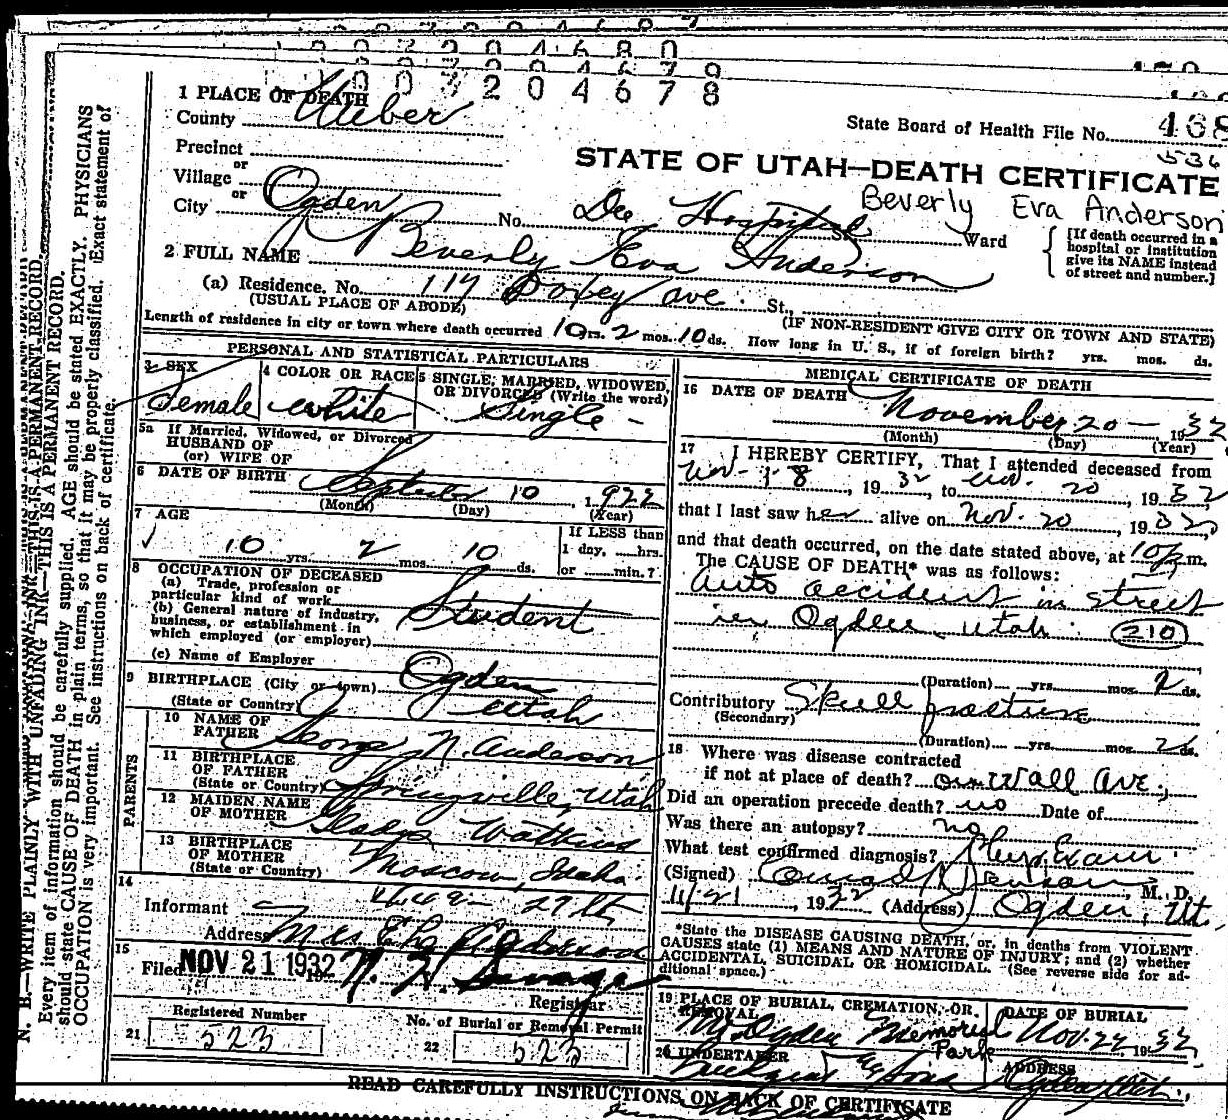 007204680
007204679
007204678
1 PLACE OF DEATH
County Weber
State Board of Health File No. 468
536
Precinct
or
Village
or
City Ogden
STATE OF UTAH—DEATH CERTIFICATE
Beverly Eva Anderson
No. Dee Hospital St. Ward
{ [If death occurred in a
hospital or institution
give its NAME instead
of street and number.]
2 FULL NAME Beverly Eva Anderson
(a) Residence. No. 117 Doxey ave. St.,
(USUAL PLACE OF ABODE)
(IF NON-RESIDENT GIVE CITY OR TOWN AND STATE)
Length of residence in city or town where death occurred 10 yrs. 2 mos. 10 ds. How long in U. S., if of foreign birth? yrs. mos. ds.
PERSONAL AND STATISTICAL PARTICULARS
3 SEX
Female
4 COLOR OR RACE
white
5 SINGLE, MARRIED, WIDOWED,
OR DIVORCED (Write the word)
Single -
5a If Married, Widowed, or Divorced
HUSBAND OF
(or) WIFE OF
6 DATE OF BIRTH September 10 1922
(Month) (Day) (Year)
7 AGE
10 yrs. 2 mos. 10 ds.
If LESS than
1 day, hrs.
or min.?
8 OCCUPATION OF DECEASED
(a) Trade, profession or
particular kind of work
(b) General nature of industry,
business, or establishment in
which employed (or employer)
Student
(c) Name of Employer
9 BIRTHPLACE (City or town) Ogden
(State or Country) Utah
PARENTS
10 NAME OF
FATHER George N. Anderson
11 BIRTHPLACE
OF FATHER
(State or Country) Springville, Utah
12 MAIDEN NAME
OF MOTHER Gladys Watkins
13 BIRTHPLACE
OF MOTHER
(State or Country) Moscow, Idaho.
14
Informant
29th
Address
15
Filed NOV 21 1932 19
Registrar
Registered Number
21 523
No. of Burial or Removal Permit
22 523
MEDICAL CERTIFICATE OF DEATH
16 DATE OF DEATH
November 20 - 1932
(Month) (Day) (Year)
17 I HEREBY CERTIFY, That I attended deceased from
Nov - 18, 1932, to Nov. 20, 1932
that I last saw her alive on Nov. 20, 1932
and that death occurred, on the date stated above, at 10 p. m.
The CAUSE OF DEATH* was as follows:
Auto accident in street
in Ogden, Utah. 210
(Duration) yrs. mos. 2 ds.
Contributory Skull fracture
(Secondary)
(Duration) yrs. mos. 2 ds.
18 Where was disease contracted
if not at place of death? on Wall Ave.,
Did an operation precede death? no Date of
Was there an autopsy? no
What test confirmed diagnosis? Phys. Exam.
(Signed) M. D.
11/21, 1932 (Address) Ogden, Ut.
*State the DISEASE CAUSING DEATH, or, in deaths from VIOLENT
CAUSES state (1) MEANS AND NATURE OF INJURY; and (2) whether
ACCIDENTAL, SUICIDAL OR HOMICIDAL. (See reverse side for ad-
ditional space.)
19 PLACE OF BURIAL, CREMATION, OR
REMOVAL
Ogden Memorial
Park
DATE OF BURIAL
Nov. 24, 1932
20 UNDERTAKER
& Sons
ADDRESS
Ogden, Utah.
READ CAREFULLY INSTRUCTIONS ON BACK OF CERTIFICATE
N. B.—WRITE PLAINLY WITH UNFADING INK—THIS IS A PERMANENT RECORD.
Every item of information should be carefully supplied. AGE should be stated EXACTLY. PHYSICIANS
should state CAUSE OF DEATH in plain terms, so that it may be properly classified. Exact statement of
OCCUPATION is very important. See instructions on back of certificate.